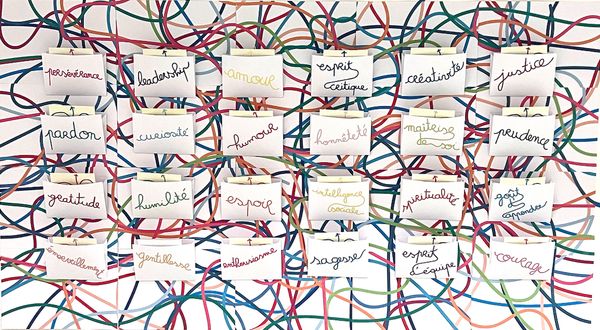 persévérance
leadership
amour
esprit
critique
créativité
justice
pardon
curiosité
humour
honnêteté
maîtrise
de soi
prudence
gratitude
humilité
espoir
intelligence
sociale
spiritualité
goût
d'apprendre
émerveillement
gentillesse
enthousiasme
sagesse
esprit
d'équipe
courage